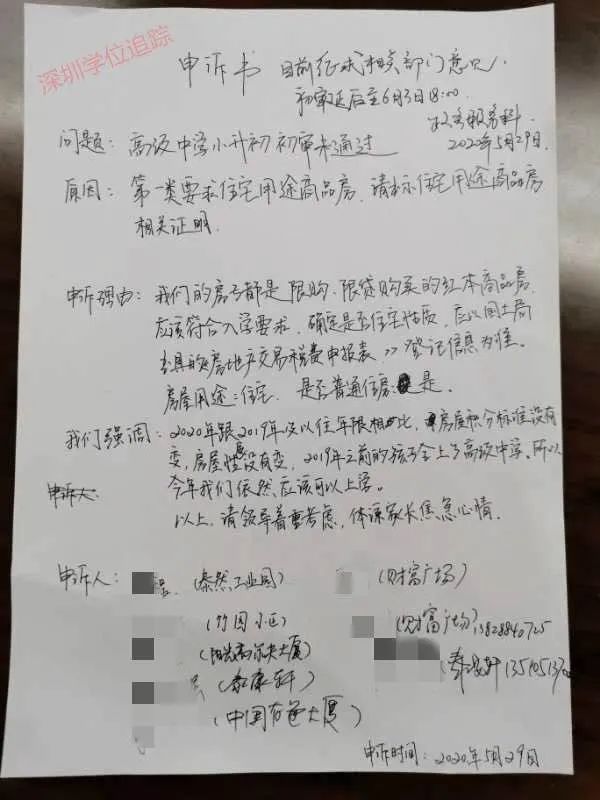 深圳学位追踪
申诉书 目前征求相关部门意见.
初审延后至6月3日18:00
2020年5月29日.
问题: 高级中学小升初初审未通过
原因: 第一类要求住宅用途商品房, 请标住宅用途商品房
相关证明.
申诉理由: 我们的房子都是限购、限贷购买的红本商品房,
应该符合入学要求. 确定是否住宅性质, 应以国土局
出具的《房地产交易税费申报表》登记信息为准.
房屋用途: 住宅 是否普通住房: 是.
我们强调: 2020年跟2019年及以往年限相比, 房屋积分标准没有
变, 房屋性质没有变, 2019年之前的孩子全上了高级中学. 所以
申诉人: 今年我们依然应该可以上学.
以上, 请领导着重考虑, 体谅家长焦急心情.
申诉人: (泰然工业园) (财富广场)
(竹园小区) (财富广场) 13828840725
(阳光高尔夫大厦) (泰康轩) 135105137
(泰康轩)
(中国有色大厦)
申诉时间: 2020年5月29日